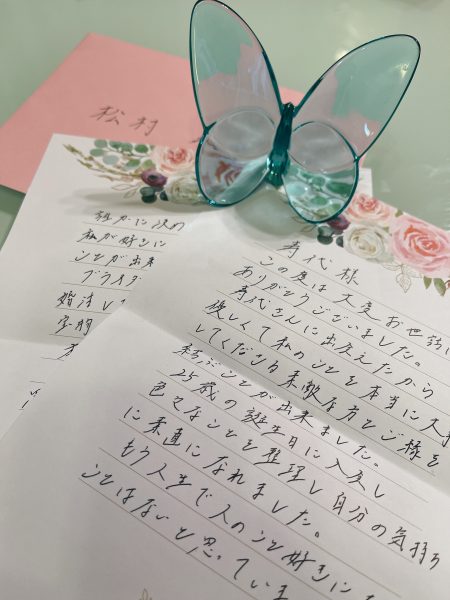 松村
寿代様
この度は大変お世話に
ありがとうございました。
寿代さんに出会えたから
優しくて私のことを本当に大
してくださる素敵な方とご縁を
結ぶことが出来ました。
25歳の誕生日に入会し
色々なことを整理し自分の気持ち
に素直になれました。
もう人生で人のこと好きに
ことはないと思っていま
私が好きに
ことが出来
ブライダ
婚活し